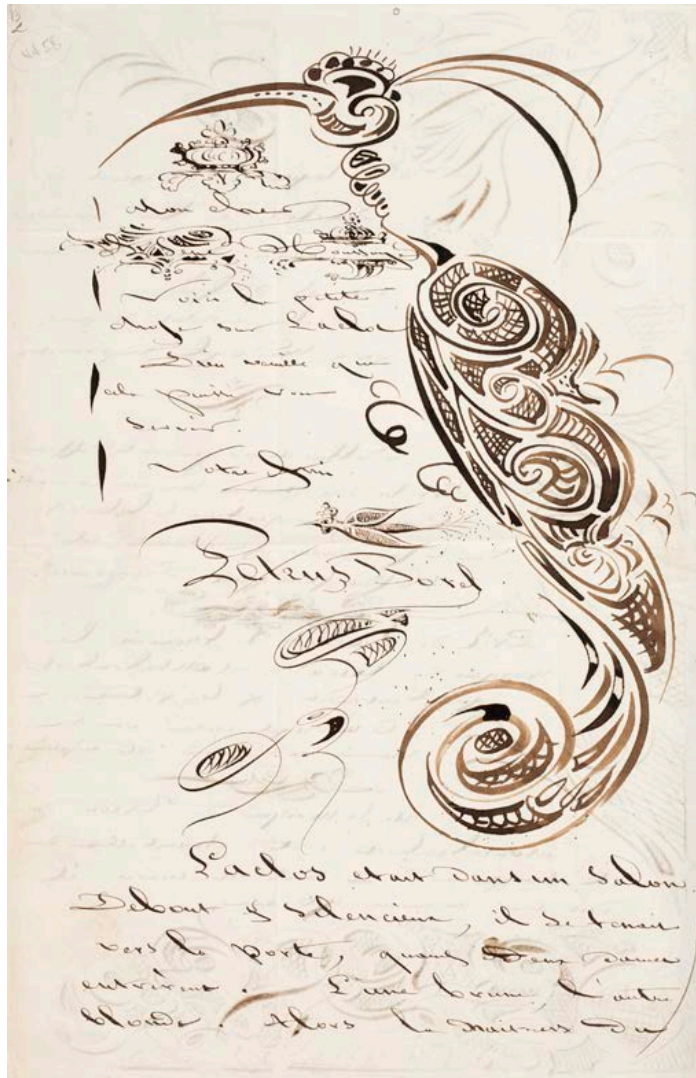 Mon cher
Voici la petite
chose sur Laclos
Dieu veuille que
cela puisse vous
servir.
Votre Ami
Petrus Borel
Laclos etait dans un Salon
Debout & Silencieux, il se tenait
vers la porte, quand Deux Dames
entrèrent. L'une brune, l'autre
blonde. Alors la Maitress du